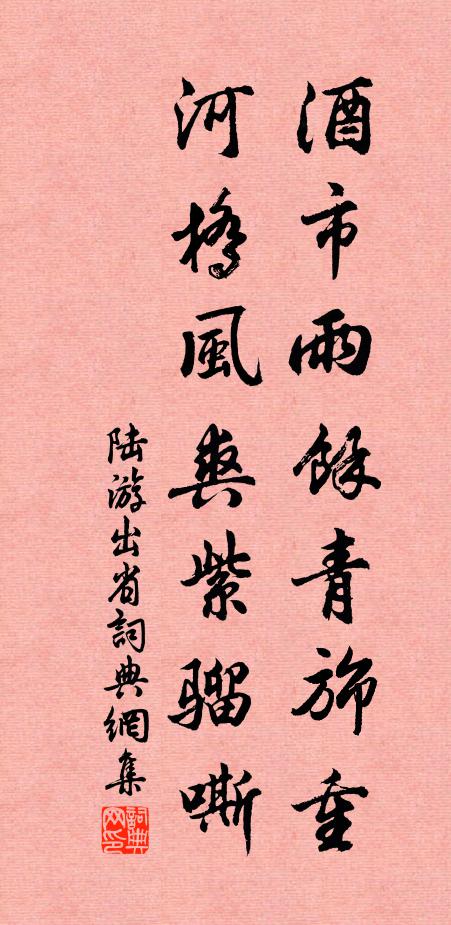 酒市雨餘青旆重
河橋風爽紫騮嘶
陆游出省詞典網集
詞典网印